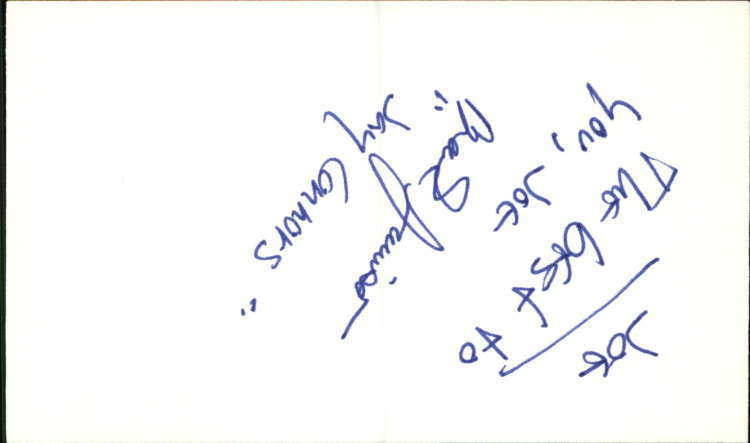 Joe
The best to
you, Joe
Mark Janicello
"Jay Connors"